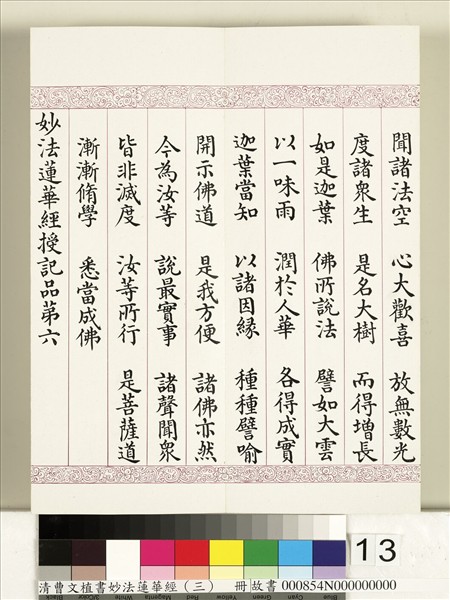 聞諸法空　心大歡喜　放無數光
度諸衆生　是名大樹　而得增長
如是迦葉　佛所說法　譬如大雲
以一味雨　潤於人華　各得成實
迦葉當知　以諸因緣　種種譬喻
開示佛道　是我方便　諸佛亦然
今為汝等　說最實事　諸聲聞衆
皆非滅度　汝等所行　是菩薩道
漸漸脩學　悉當成佛
妙法蓮華經授記品苐六
13
清曹文植書妙法蓮華經（三）　冊 故書 000854N000000000